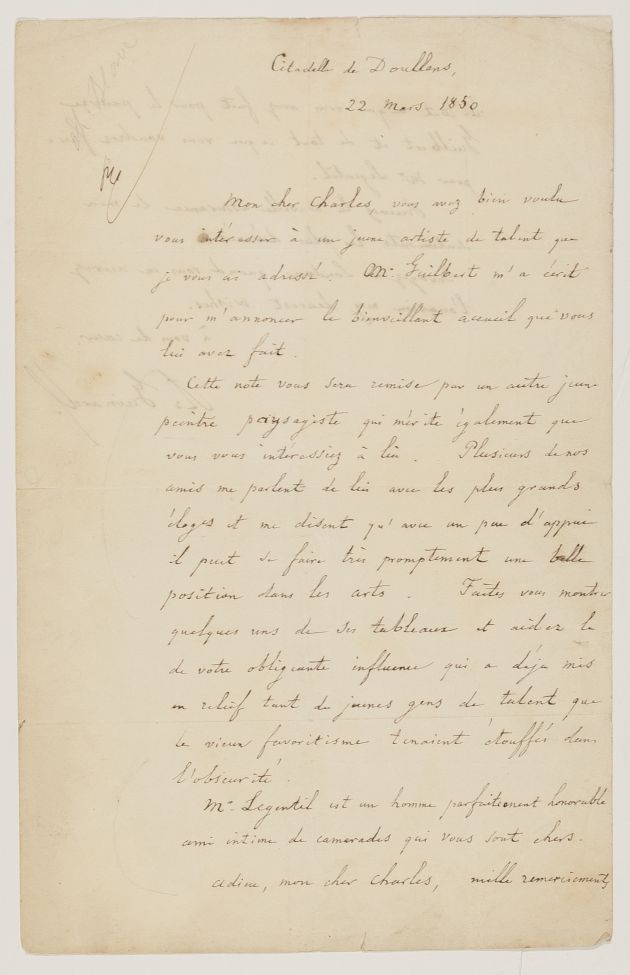 Citadelle de Doullens,
22 mars 1850
Mon cher Charles, vous avez bien voulu
vous intéresser à un jeune artiste de talent que
je vous ai adressé. Mr Guilbert m'a écrit
pour m'annoncer le bienveillant accueil que vous
lui avez fait.
Cette note vous sera remise par un autre jeune
peintre paysagiste qui mérite également que
vous vous intéressiez à lui. Plusieurs de nos
amis me parlent de lui avec les plus grands
éloges et me disent qu'avec un peu d'appui
il peut se faire très promptement une belle
position dans les arts. Faites vous montrer
quelques uns de ses tableaux et aidez le
de votre obligeante influence qui a déjà mis
en relief tant de jeunes gens de talent que
le vieux favoritisme tenaient étouffés dans
l'obscurité.
Mr Legentil est un homme parfaitement honorable
ami intime de camarades qui vous sont chers.
adieu, mon cher Charles, mille remerciements,